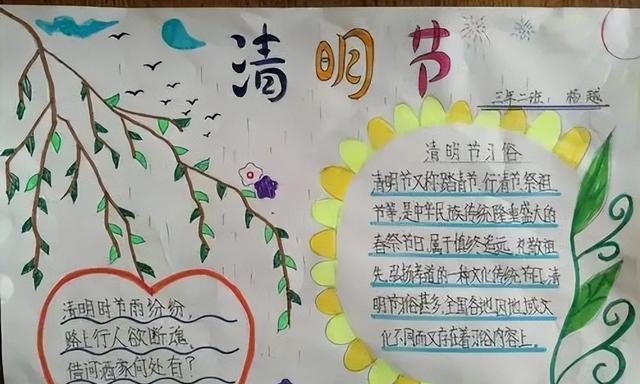 清明节
三年二班：杨越
清明节习俗
清明节又称踏青节、行清节、祭祖
节等，是中华民族传统隆重盛大的
春祭节日，属于慎终追远、礼敬祖
先、弘扬孝道的一种文化传统节日。清
明节习俗甚多，全国各地因地域文
化不同而又存在着习俗内容上，
清明时节雨纷纷，
路上行人欲断魂，
借问酒家何处有？